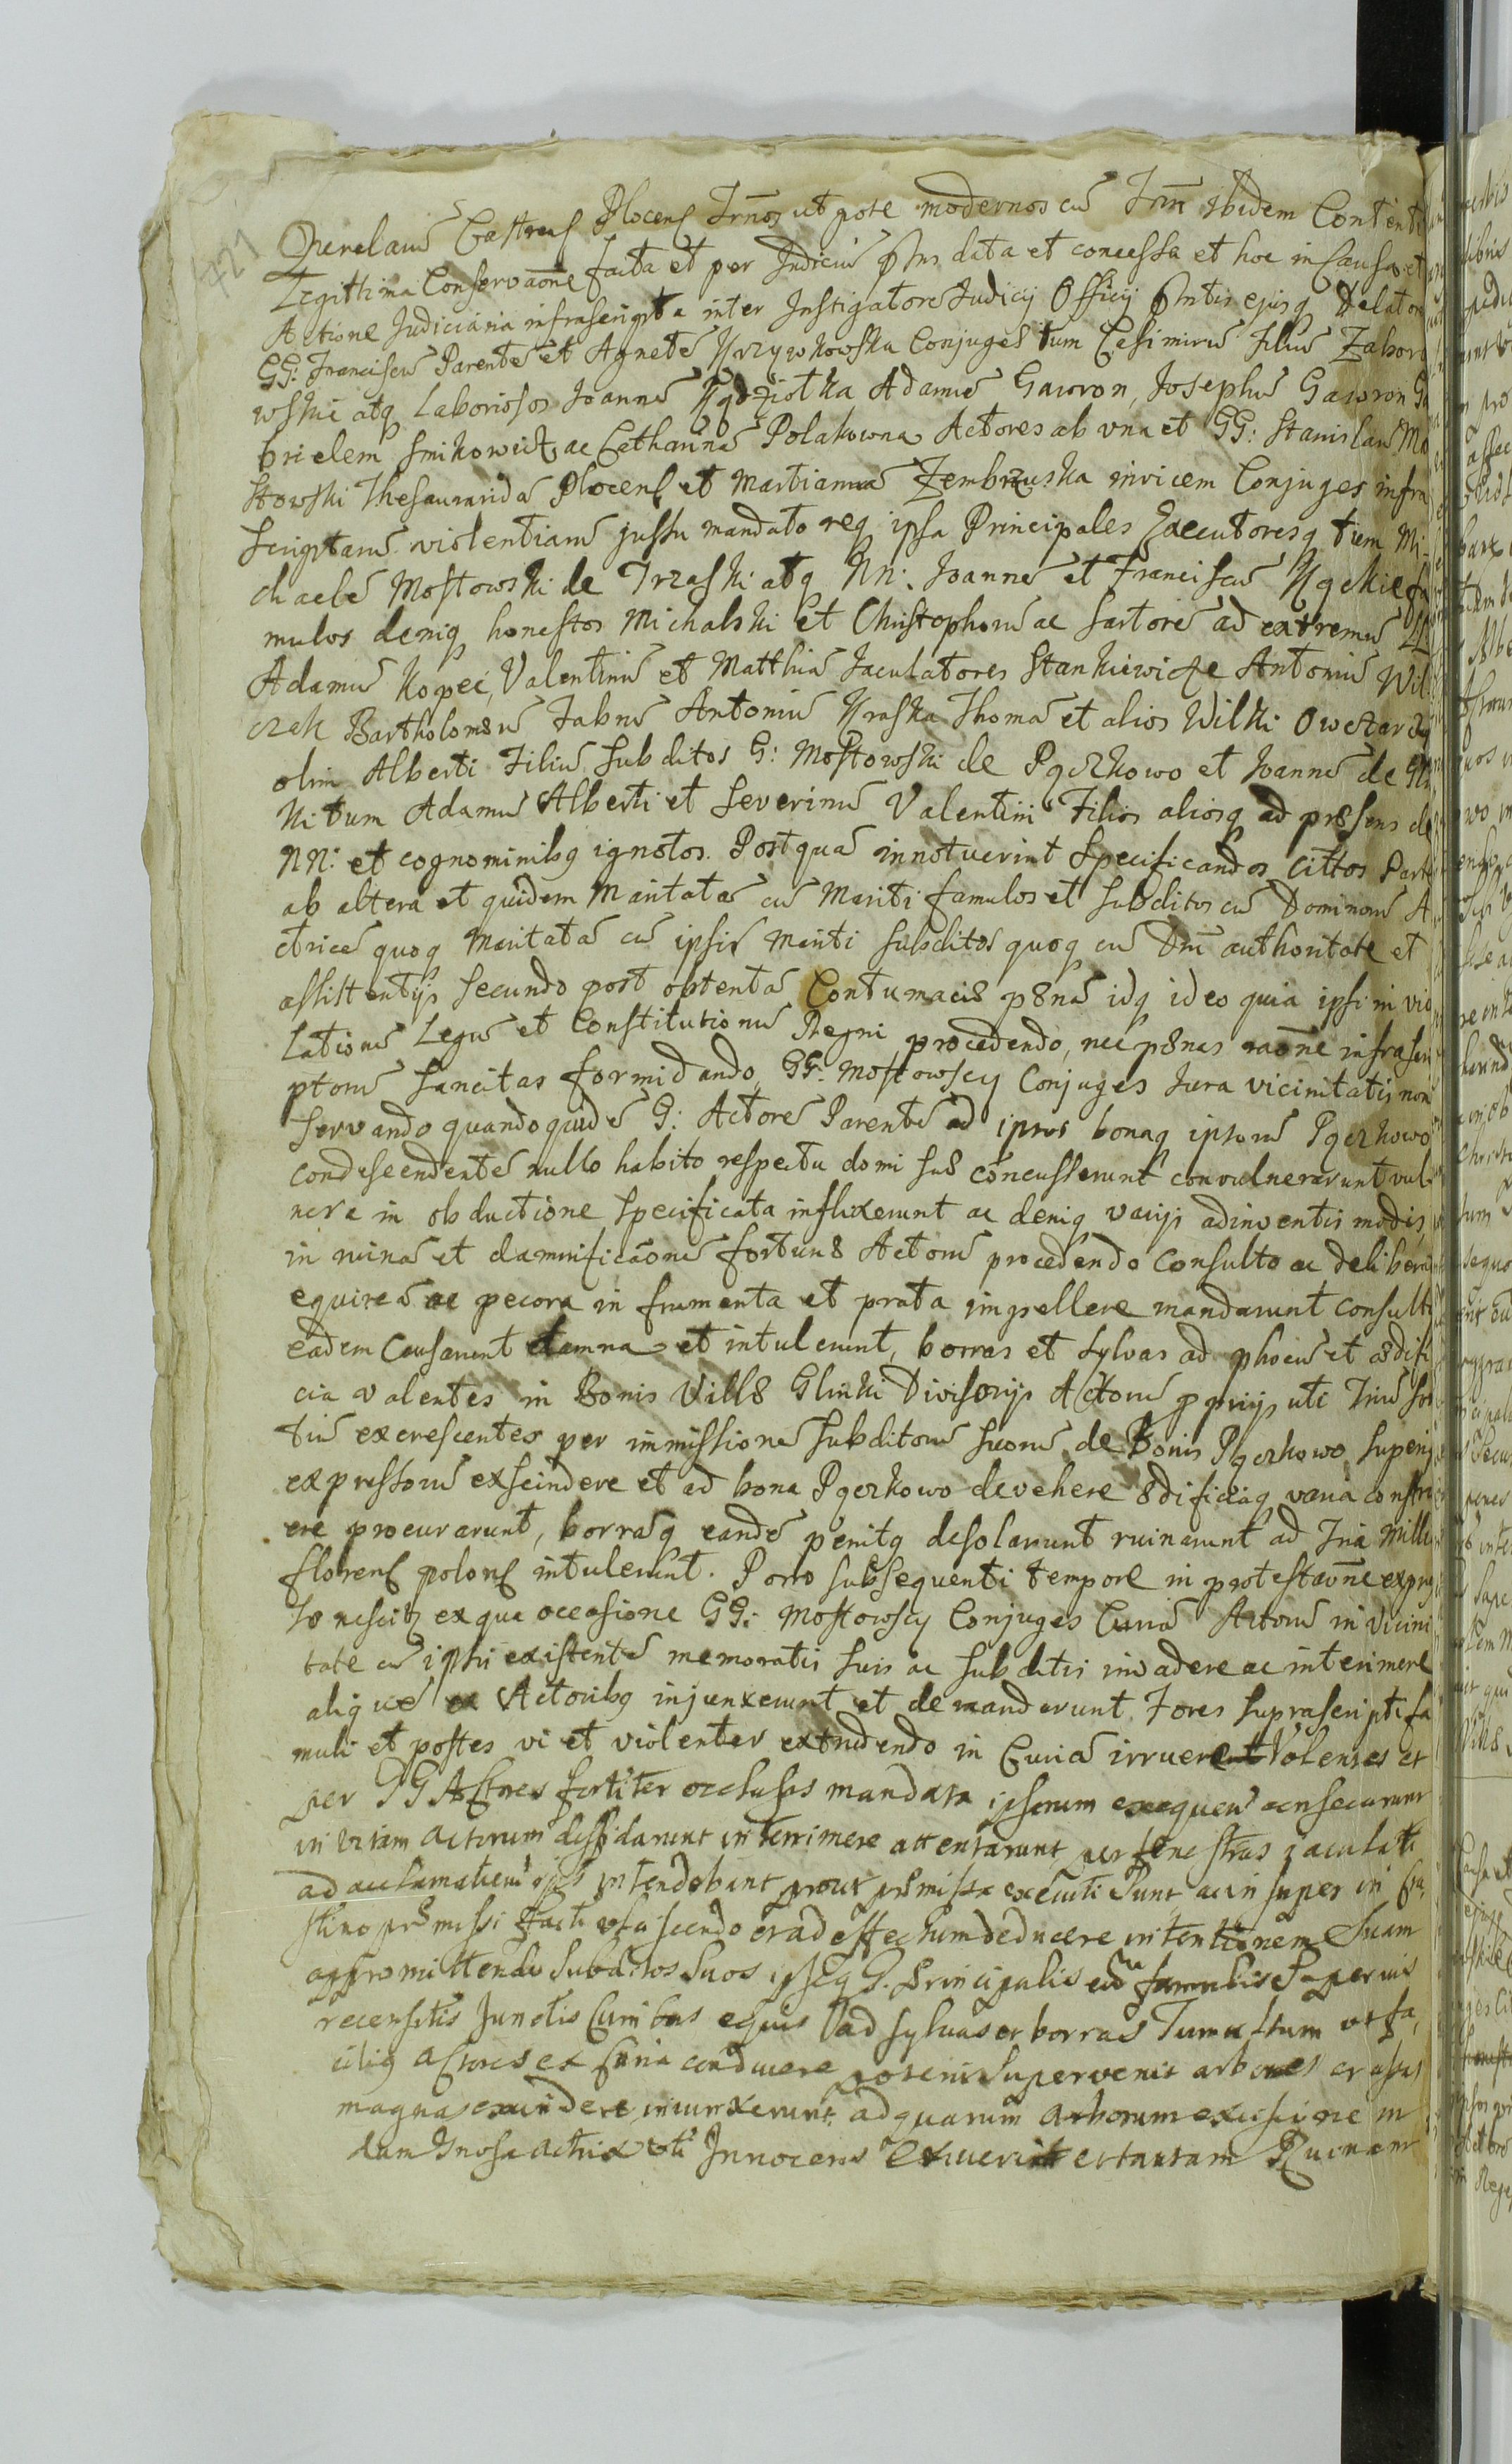 421
Querelarū Castrens Plocens Trnos ut pote modernos cū Trm̄ ibidem Content
Legittima Conservaōne facta et per Judiciū pn̄s data et concessa et hoc in Causa et
Actione Judiciaria infrascripta inter Instigatorē Judicij Officij pn̄tis ejusq Delatore
GG: Franciscū Parentē et Agnetē Krzywkowska Conjuges tum Casimirū Filiū Zaboro
wskie atq Laboriosos Joannē Kądziołka Adamū Gawron, Josephū Gawron Ga
brielem Smikowicz ac Catharinā Polakowna Actores ab una et GG: Stanislaū Mo
stowski Thesaurarida Plocens et Martiannā Zembrzuska invicem Conjuges infra
scriptarū violentiarū jussu mandato req ipsa Principales Executoresq tum Mi-
chaelē Mostowski de Trzaski atq NN: Joannē et Franciscū Kąckie fa
mulos deniq honestos Michalski et Christophorū ac Sartorē ad extremū LL
Adamū Kopeć, Valentinū et Matthiā Jaculatores Stankiewicze Antoniū Wil
czek Bartholomeū Jabnē Antoniū Kraska Thomā et alios Wilki Owczarzy
olim Alberti Filiū Subditos G: Mostowski de Pączkowo et Joannē de Gli
ki tum Adamū Alberti et Severinū Valentini Filios aliosq ad præsens de
NN: et cognominibq ignotos. Postquā innotuerint specificandos Cittos Parte
ab altera et quidem Maritatā cū Mariti famulos et subditos cū Dominorū A
ctricē quoq Maritatā cū ipsis Mariti subditos quoq cū Dni authoritate et
assistentijs secundo post obtentā Contumaciæ pænā idq ideo quia ipsi in vio
lationē Legū et Constitutionū Regni procedendo, nec pænas raōne infrascri
ptorū sancitas formidando, GG: Mostowscy Conjuges Jura vicinitatis non
servando quandoquidē G: Actorē Parentē ad ipsos bonaq ipsorū Pączkowo
condescendentē nullo habito respectu domi suæ concusserunt convulnerarunt vul-
nera in obductione specificata inflixerunt ac deniq varijs adinventis modis,
in ruinā et damnificaōnē fortunæ Actorū procedendo consulto ac delibera
equireā ac pecora in frumenta et prata impellere mandarunt consulto
eadem Causarunt damna et intulerunt, borras et sylvas ad phocū et ædifi
cia valentes in Bonis Villæ Glinki Divisorijs Actorū pprijs uti Triū sor
tiū excrescentes per immissionē subditorū suorū de Bonis Pączkowo superiq
expressorū exscindere et ad bona Pączkowo devehere ædificiaq varia constru
ere procurarunt, borrasq eandē penitq desolarunt ruinarunt ad Tria Millia
florens polons intulerunt. Porro subsequenti tempore in protestaōne expres
so nescitr ex qua occasione GG: Mostowscy Conjuges Curiā Actorū in Vicini
tate cū ipsis existentē memoratis suis ac subditis invadere ac interimere
aliquē ex Actoribq injunxerunt et demandarunt. Fores suprascripti fa
muli et postes vi et violenter extrudendo in Curiā irruere Volentes et
per GG Actores fortiter occlusos mandata ipsorum exequen̄ consecurunt
in vitam actorum diffidarunt interrimere attentarunt per fenestras jaculati
ad acclamatiem eos intendebant prout præmissa executi sunt ac in super in cra-
stino præmissi facti ulciscendo et ad effectum deducere intentionem suam
appromittendo subditos suos ipseq G. Principalis cū famulis superius
recensitis junctis Curribus equis ad sylvas et borras Tumultum ut fa,
ciliq actores ex Curia conducere potenis supervenit arbores crassas
magnas excindere iniunxerunt, ad quarum arborum excissione m
dum Gnosa actrix uti Innocens Exiverit et tantam Ruinam